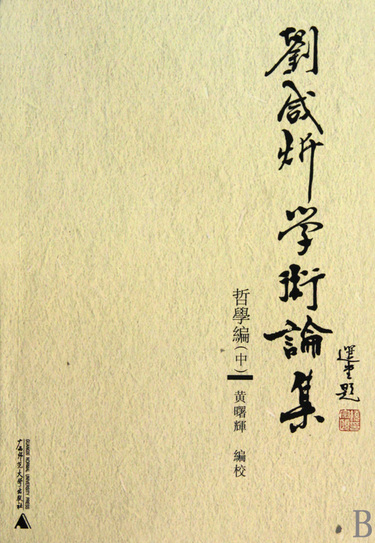 劉咸炘學術論集
選堂題
哲學編(中)
黃曙輝 編校
广西师范大学出版社
B